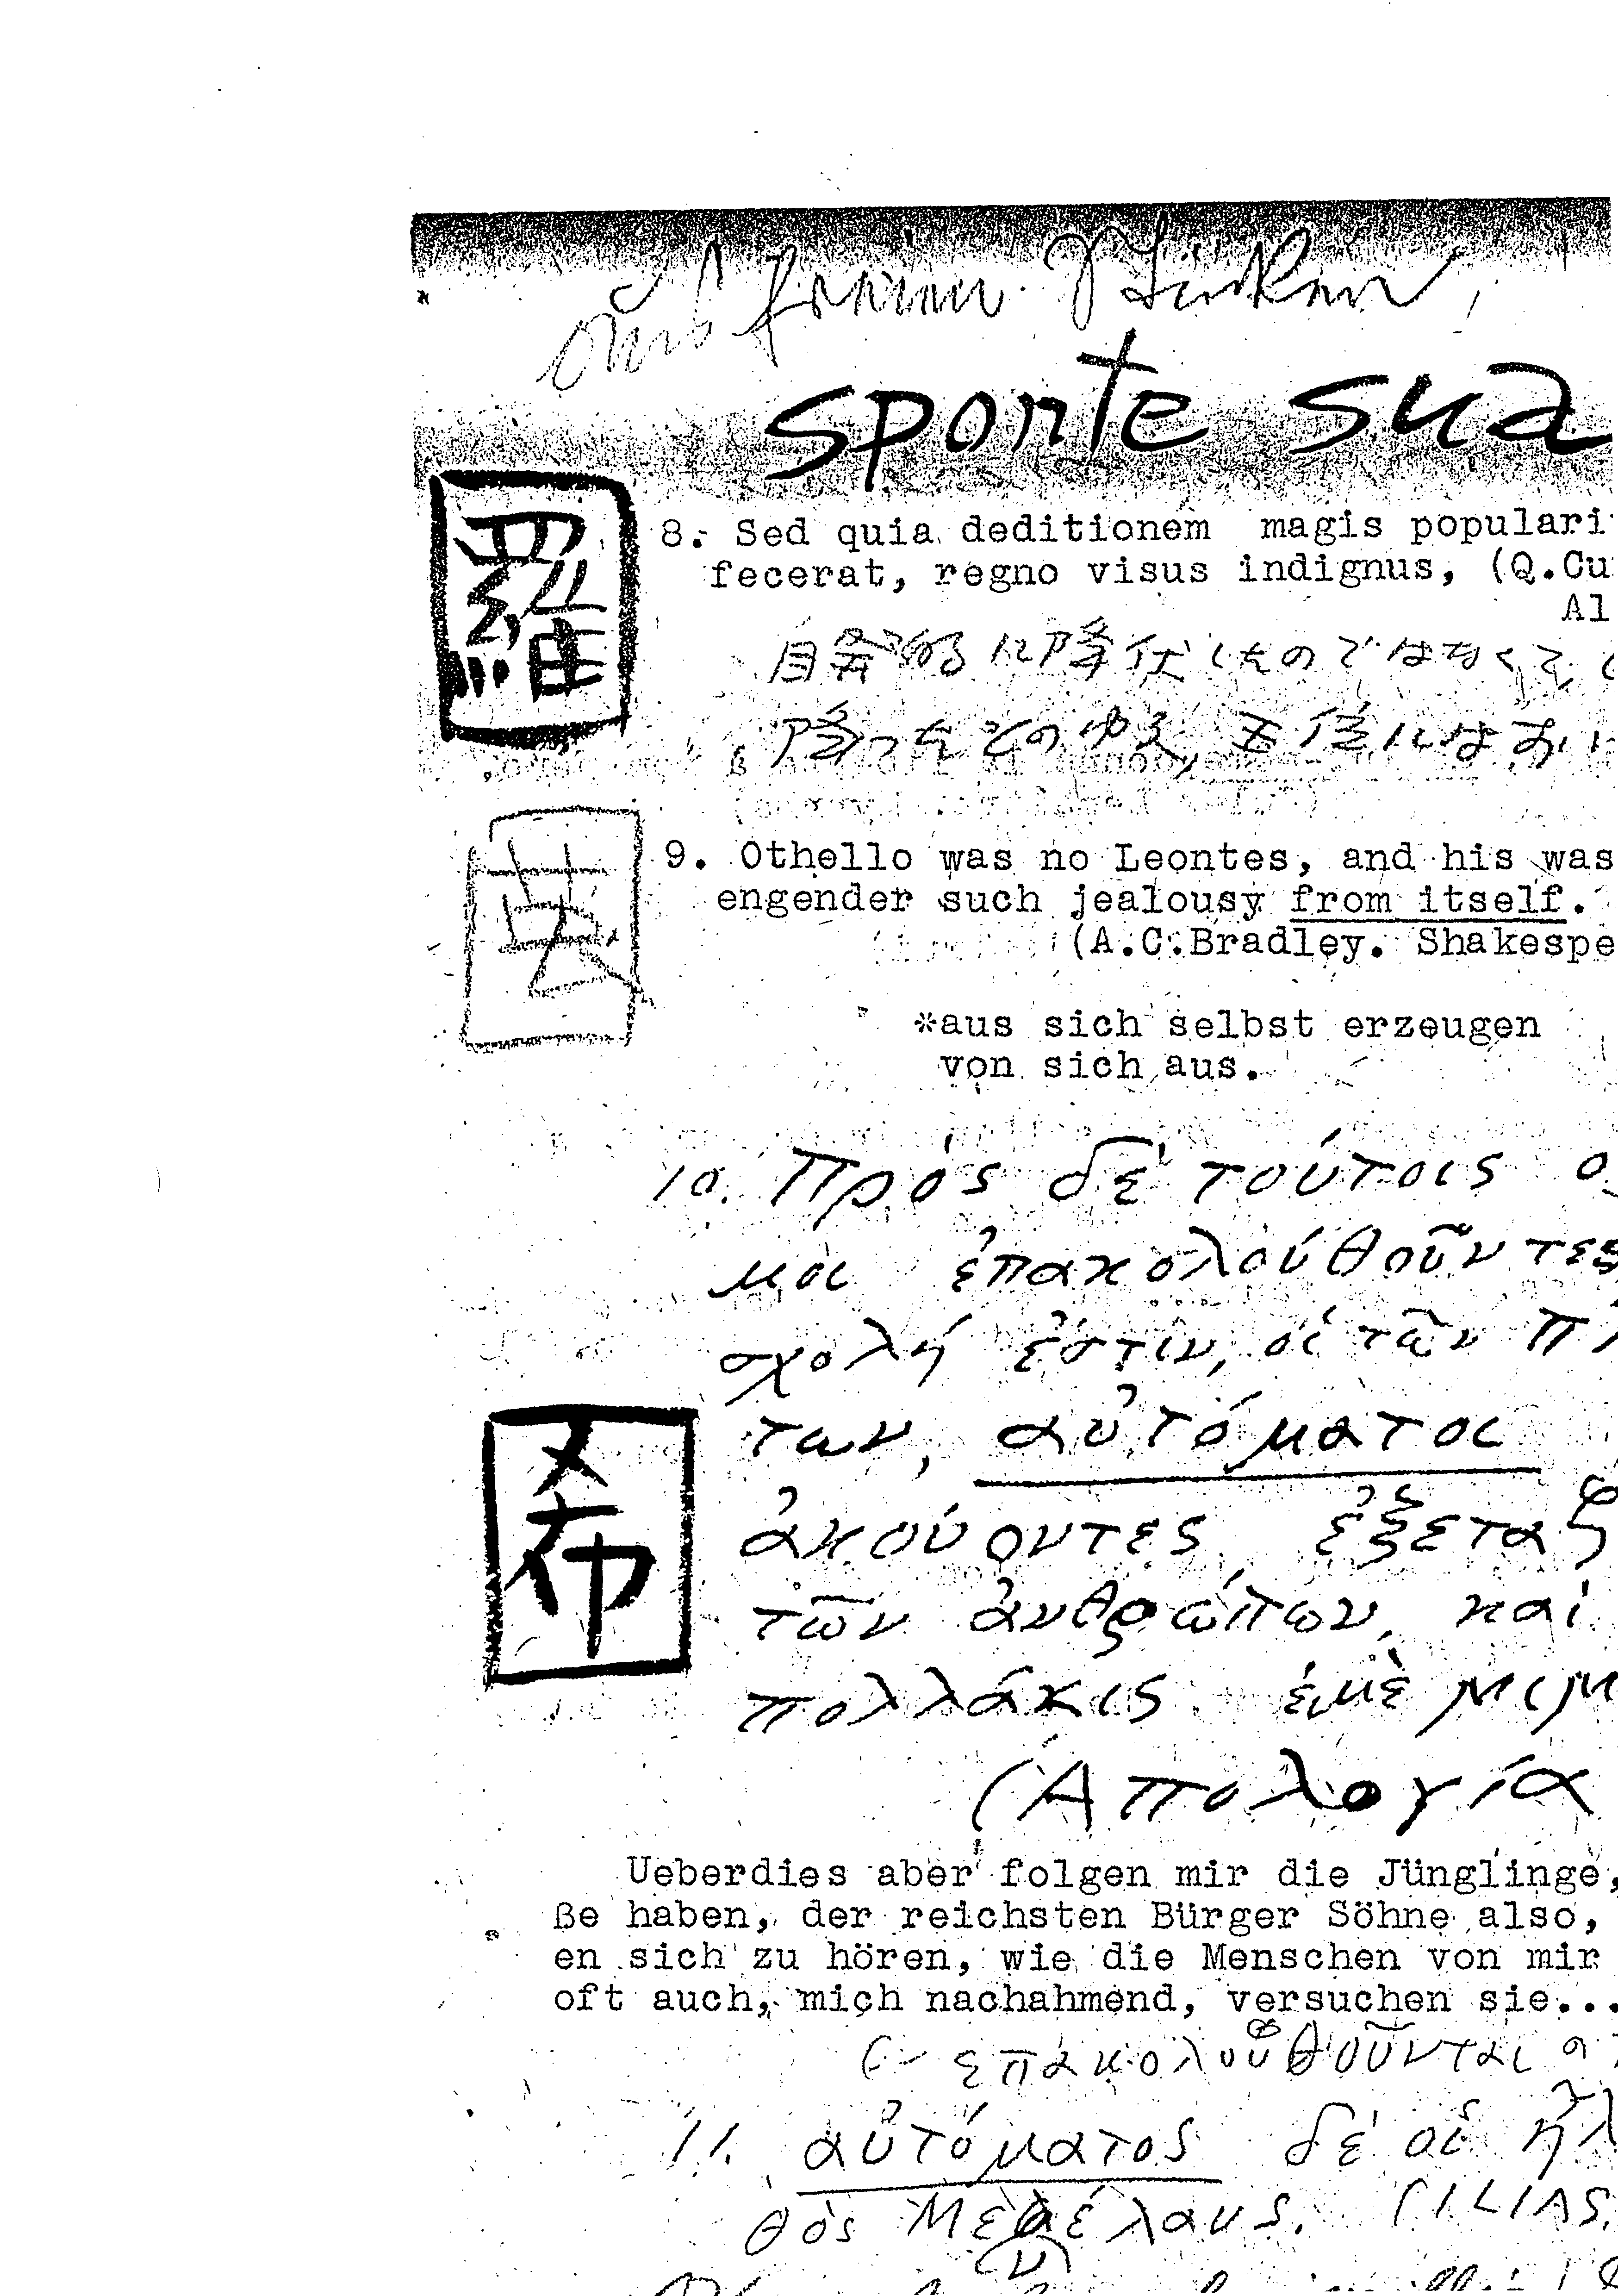 aus freien Stücken,
sponte sua
羅
8. Sed quia deditionem magis populari
fecerat, regno visus indignus, (Q.Cu
Al
自発的に降伏したのではなくて, し
降ったその中ゆえ, 王位にはあい
英
9. Othello was no Leontes, and his was
engender such jealousy from itself.
(A.C.Bradley. Shakespe
*aus sich selbst erzeugen
von sich aus.
10. Πρὸς δὲ τούτοις ο
μοι ἐπακολούθοῦντες
σχολή ἐστιν, οἱ τῶν πλ
των, αὐτόματοι
希
ἀκούοντες ἐξεταζ
τῶν ἀνθρώπων, καὶ
πολλάκις ἐμὲ μιμ
(Ἀπολογία
Ueberdies aber folgen mir die Jünglinge,
ße haben, der reichsten Bürger Söhne also,
en sich zu hören, wie die Menschen von mir
oft auch, mich nachahmend, versuchen sie...
επακολουθοῦνται
11. αὐτόματος δέ οἱ ἦλ
θὸς Μενέλαυς. (ILIAS.